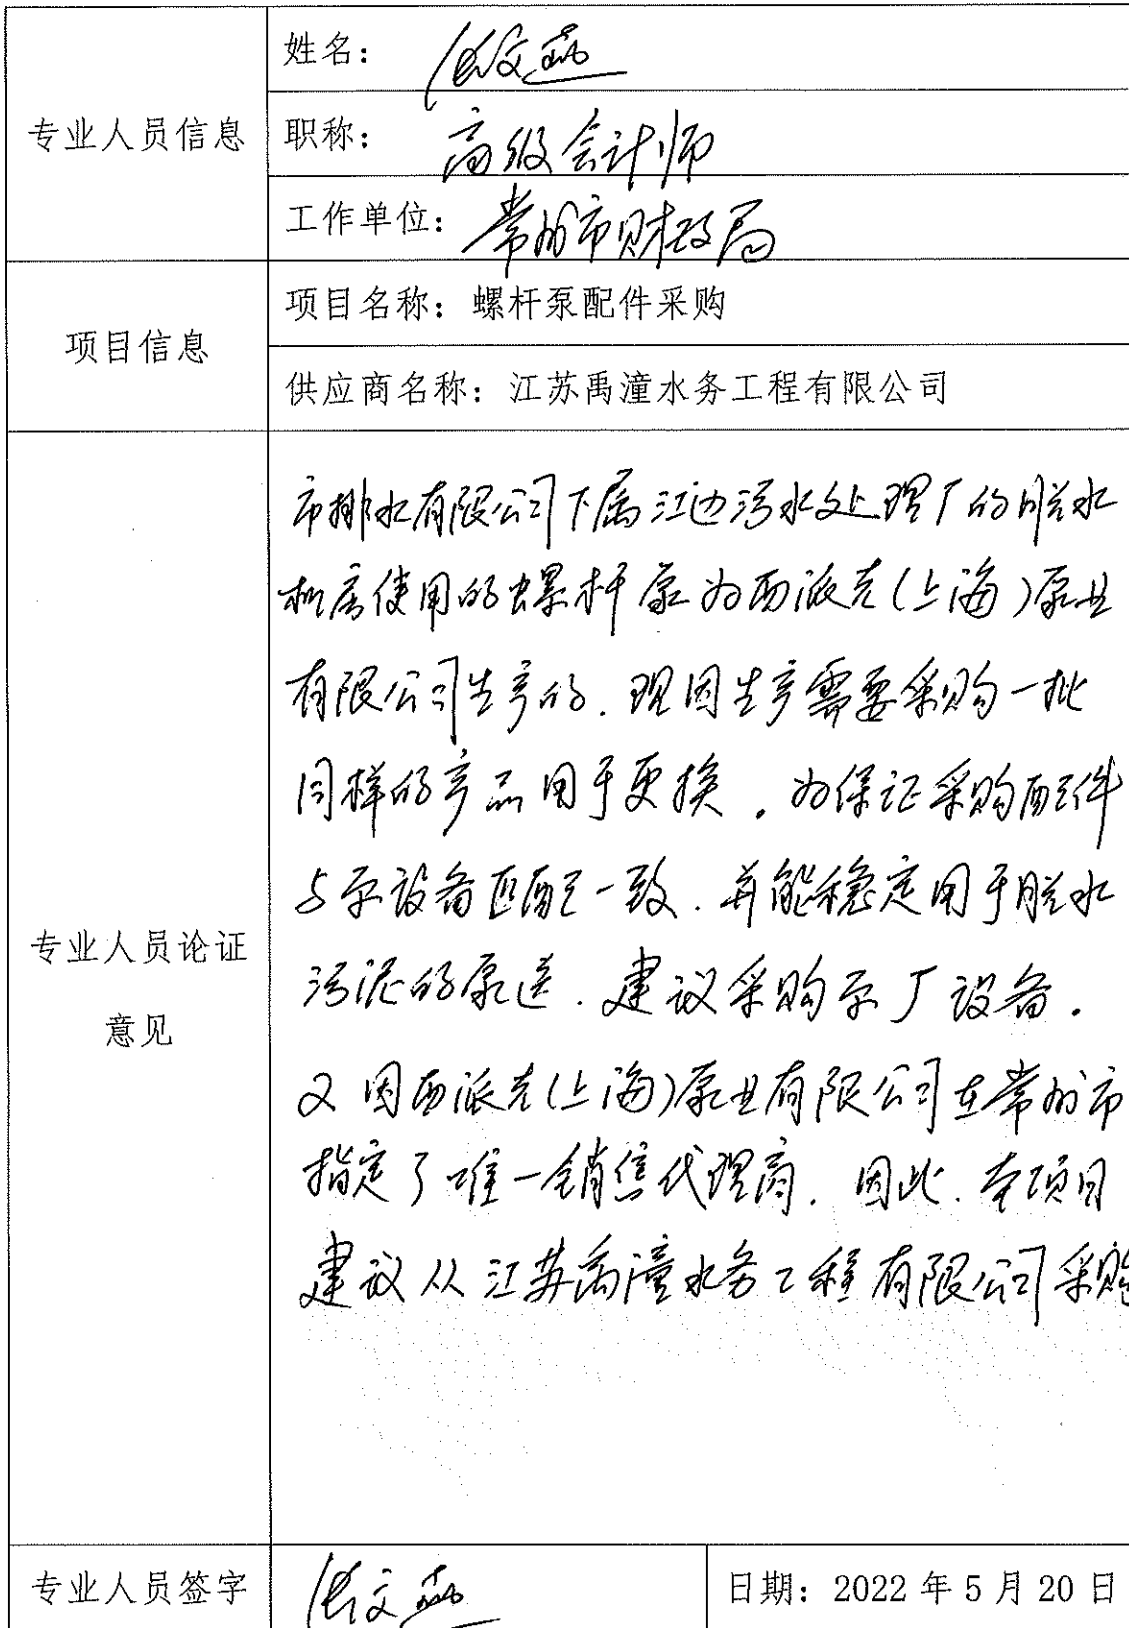 专业人员信息
姓名：张文燕
职称：高级会计师
工作单位：常州市财政局
项目信息
项目名称：螺杆泵配件采购
供应商名称：江苏禹潼水务工程有限公司
专业人员论证
意见
市排水有限公司下属江边污水处理厂的脱水
机房使用的螺杆泵为西派克(上海)泵业
有限公司生产的.现因生产需要采购一批
同样的产品用于更换.为保证采购配件
与原设备匹配一致.并能稳定用于脱水
污泥的泵送.建议采购原厂设备.
又因西派克(上海)泵业有限公司在常州市
指定了唯一销售代理商.因此.本项目
建议从江苏禹潼水务工程有限公司采购
专业人员签字
张文燕
日期：2022年5月20日